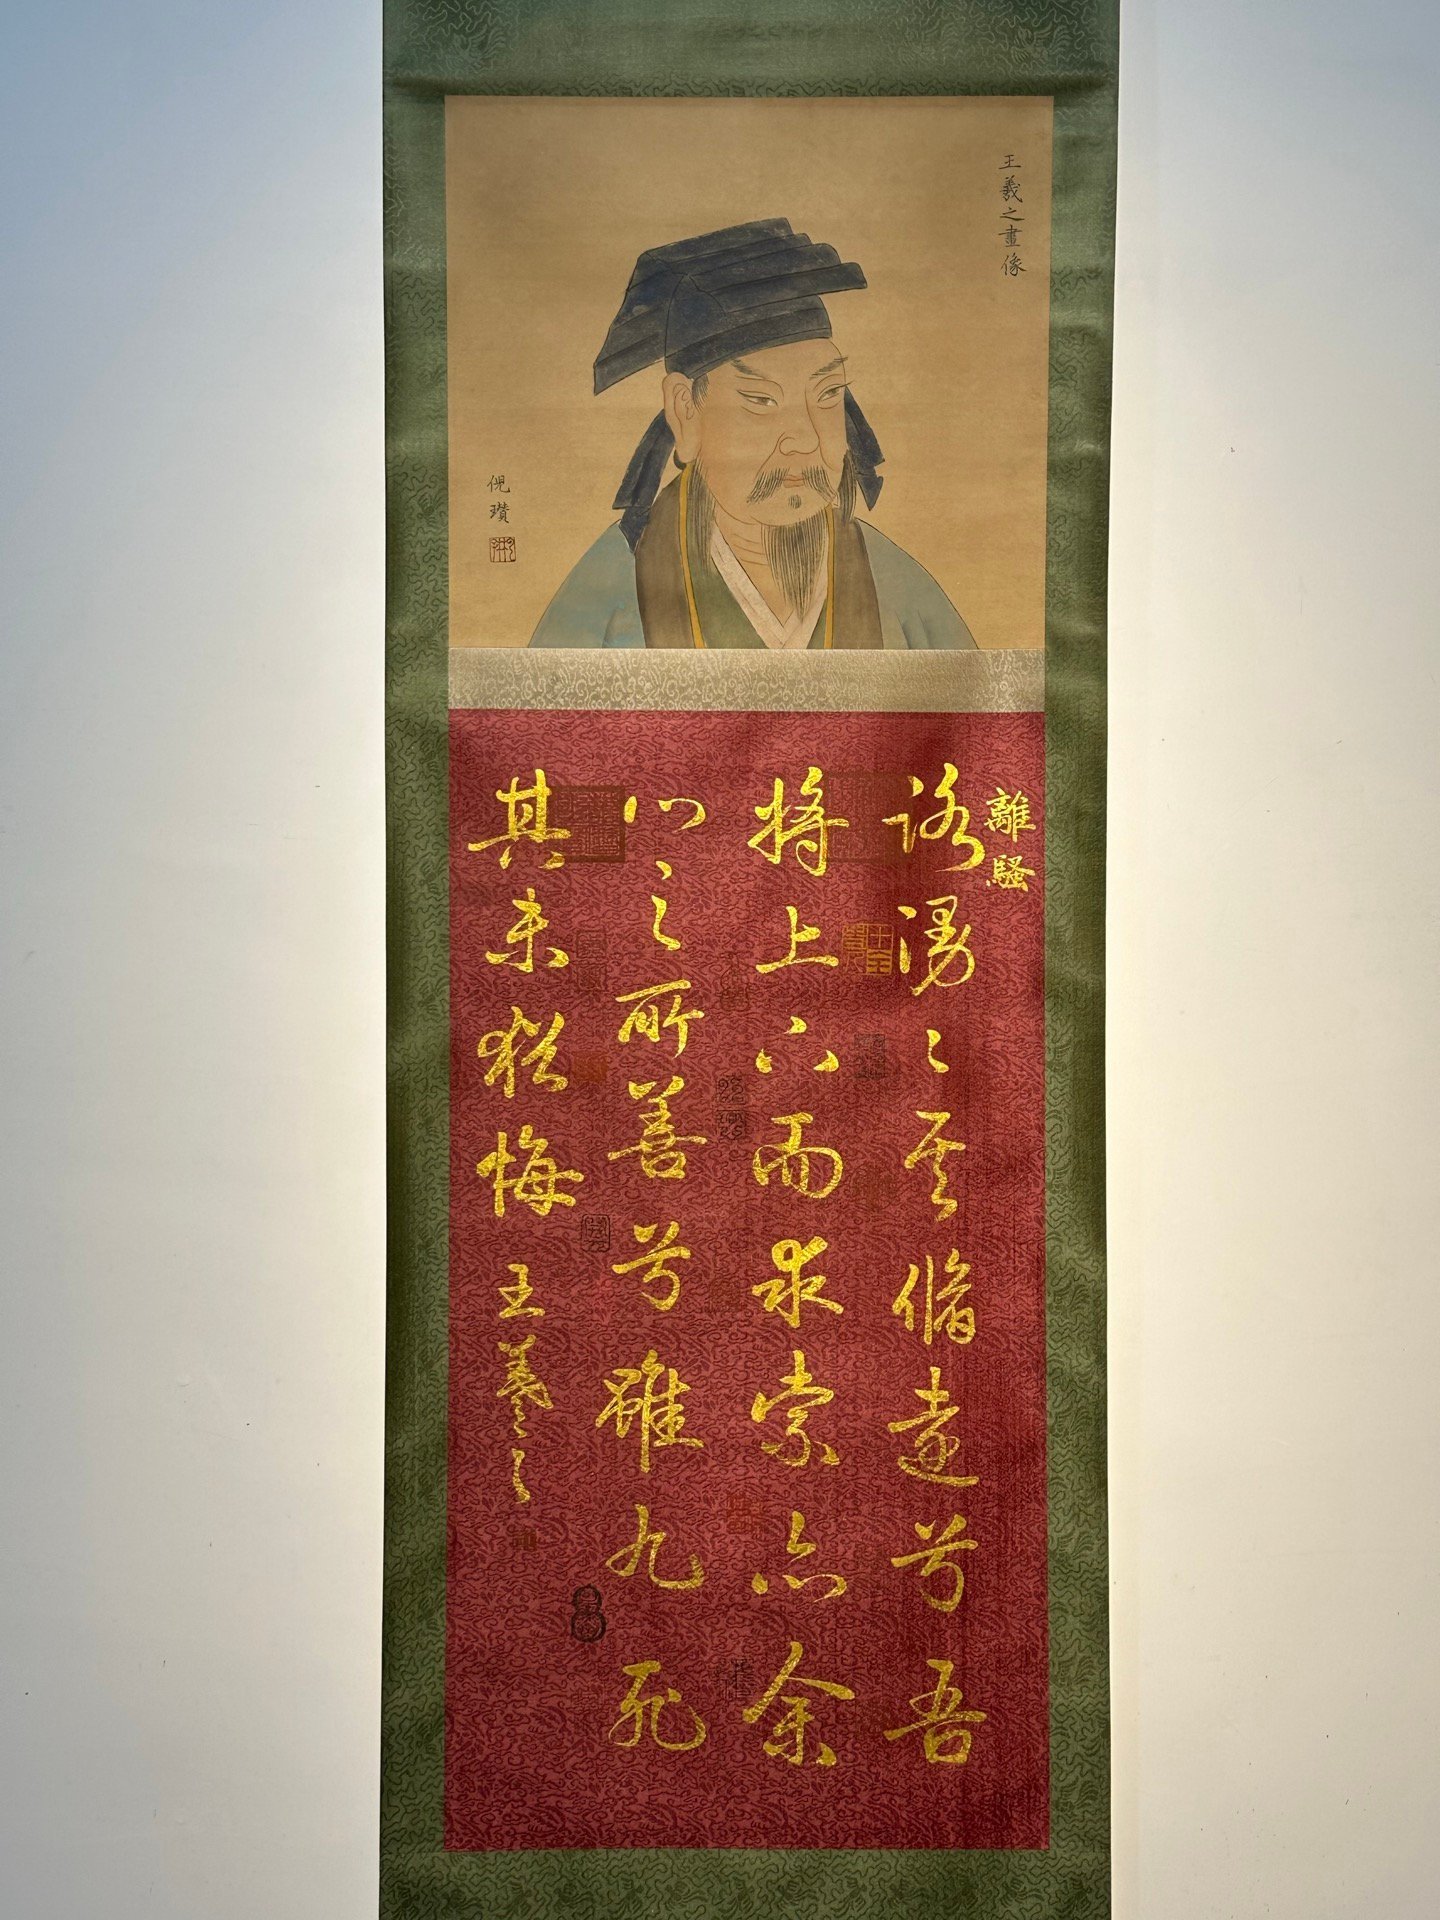 王羲之畫像
倪瓚
離騷
路漫〻其脩遠兮吾
將上下而求索亦余
心之所善兮雖九死
其未猶悔
王羲之